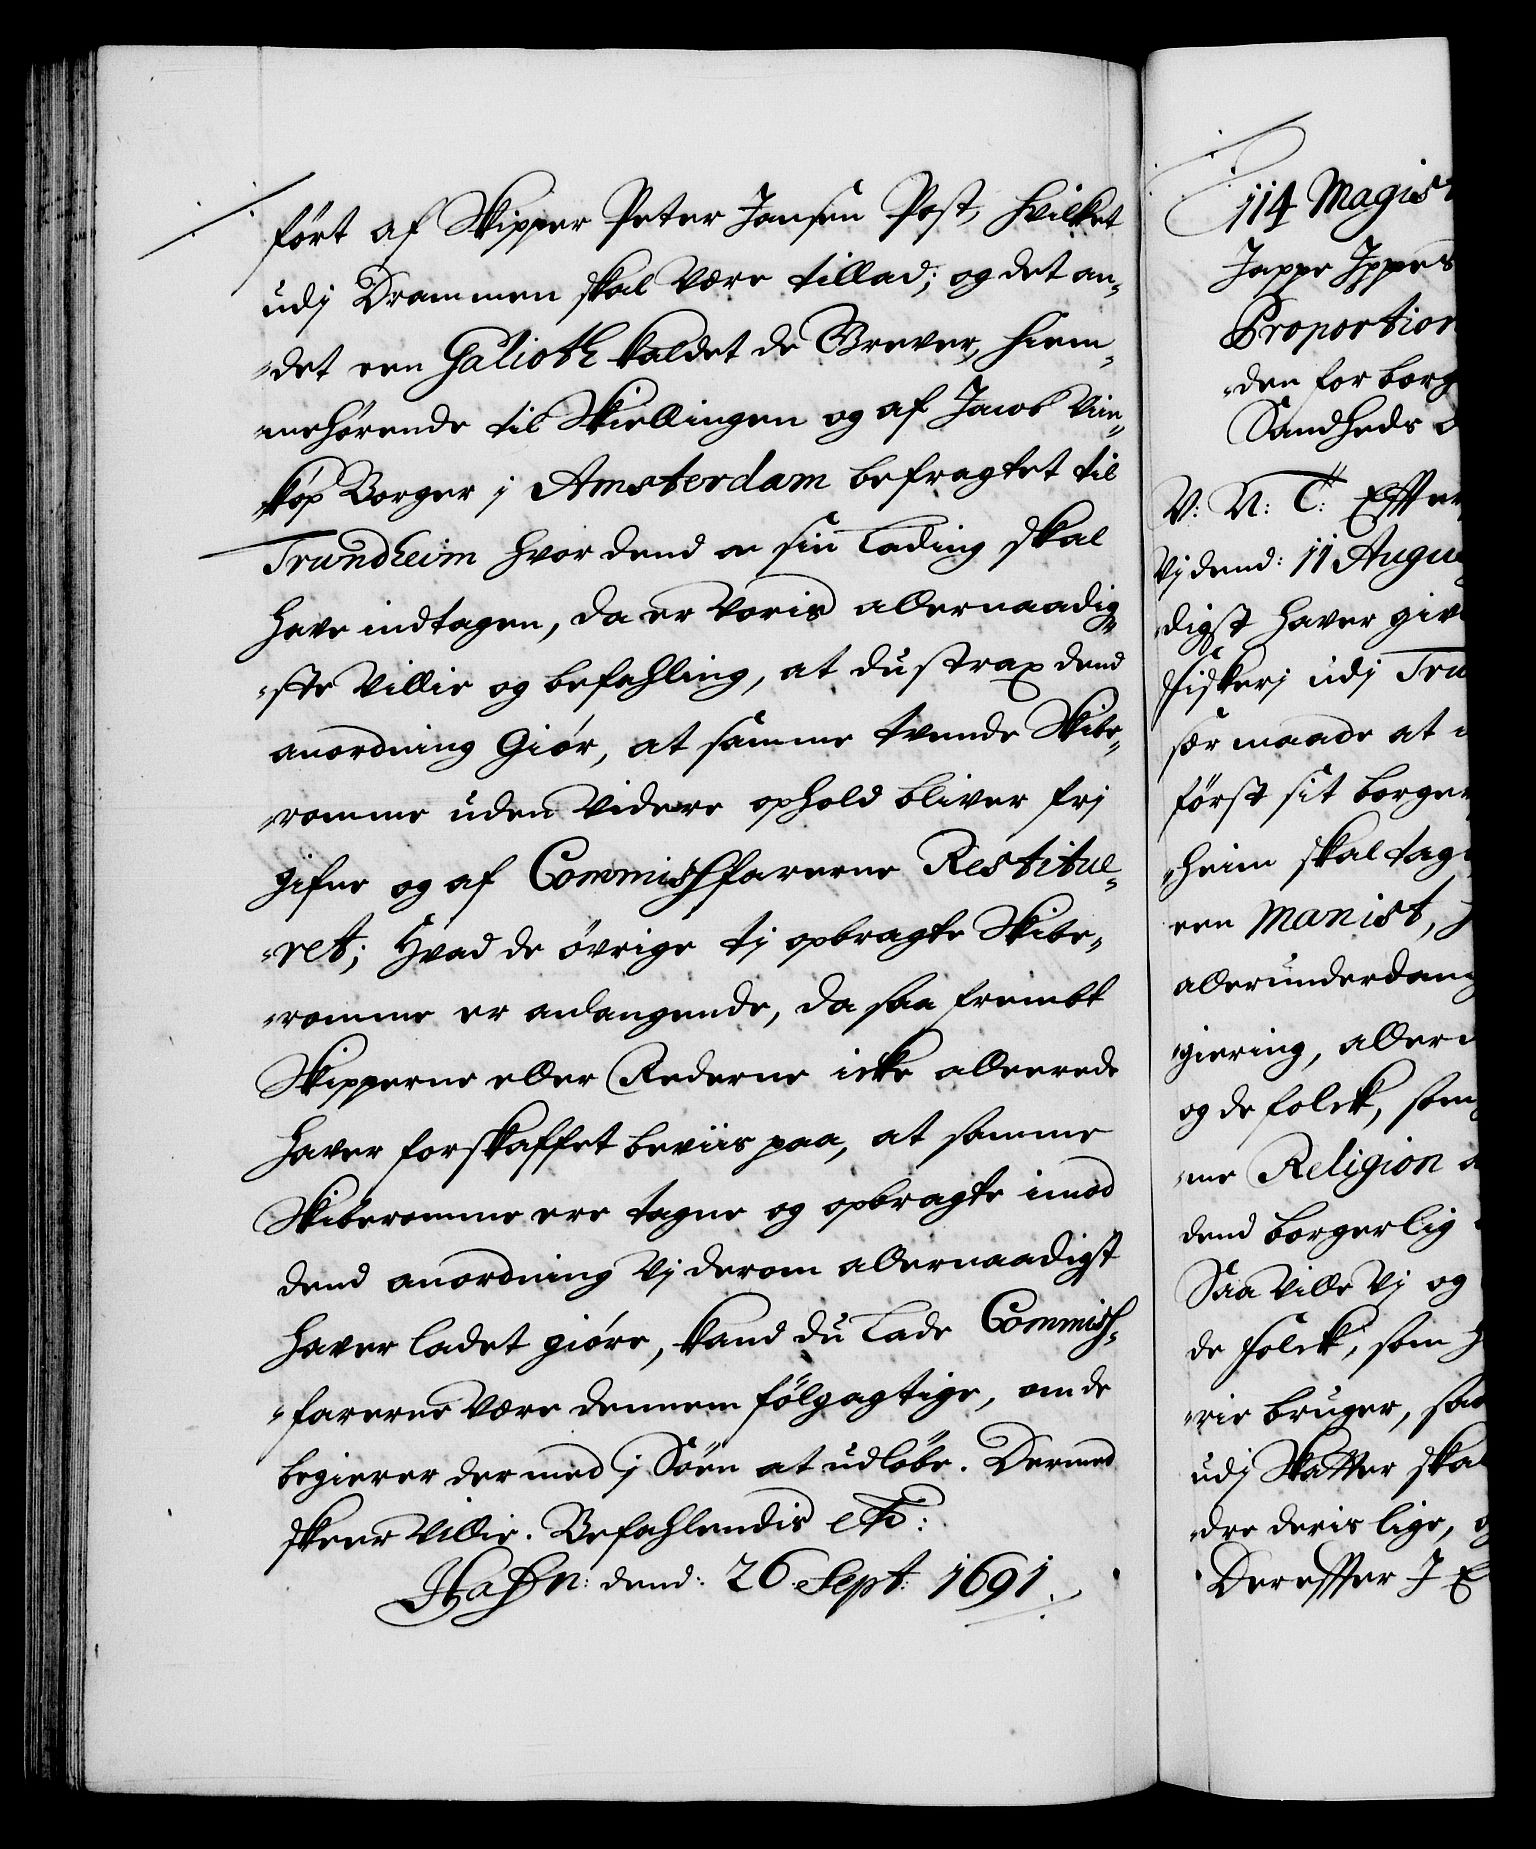 ført af Skipper Peter Jansen Post, hvilket
udj Drammen skal være tillad; og det an¬
¬det een Galioth kaldet de Brever, hiem¬
¬mehørende til Skiellingen og af Jacob Vin¬
¬kop Borger j Amsterdam befragtet til
Trundheim hvor dend sin Lading skal
have indtagen, da er Voris allernaadig¬
¬ste Villie og befahling, at du strax dend
anordning Giør, at samme tvende Skibe¬
¬romme uden videre ophold bliver frj
gifne og af Commissarerne Restitue¬
¬ret; Hvad de øvrige tj opbragte Skibe¬
¬romme er anlangende, da saa frembt
Skipperne eller Rederne icke allerede
haver forskaffet beviis paa, at samme
Skiberomme ere tagne og opbragte imod
dend anordning Vj derom allernaadigst
haver ladet giøre, kand du lade Commiss¬
¬sarerne være dennem følgagtige, om de
begierer der med j Søen at udløbe. Dermed
skeer Villie. Befahlendis etc:
Hafn: dend: 26. Sept: 1691.
114 Magist
Jappe Ippes
Proportion
¬den for borg
Sandheds
V: N: T: Effter
Vj dend: 11 Augu
digst haver give
fiskerj udj Tru
sær maade at
først sit borger
¬heim skal tag
een Manist,
allerunderdan
¬giering, aller
og de folck, som
¬me Religion
dend borgerlig
Saa ville Vj og
de folck, som
¬rie bruger, saa
udj Skatter skal
¬dre deris lige,
Dereffter I